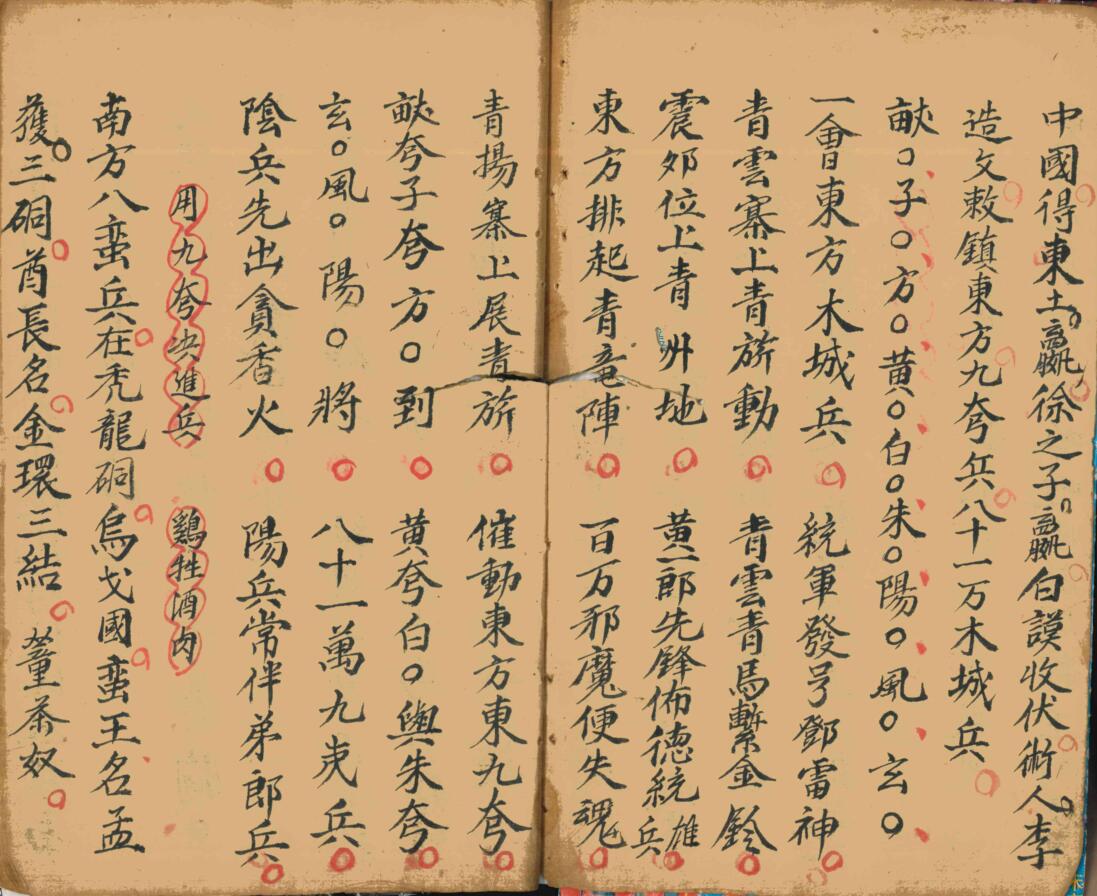 中國得東土嬴徐之子嬴白謨收伏術人李
造文敕鎮東方九夸兵八十一万木城兵
畎○子○方○黄○白○朱○陽○風○玄○
一會東方木城兵 統軍發号鄧雷神
青雲寨上青旂動 青雲青馬繫金鈴
震夘位上青州地 黄一郎先鋒佈德統雄兵
東方排起青竜陣 百万邪魔便失魂
青揚寨上展青旂 催動東方東九夸
畎夸子夸方○到 黄夸白○與朱夸
玄○風○陽○將 八十一萬九夷兵
陰兵先出貪香火 陽兵常伴弟郎兵
用九夸决進兵 鷄牲酒肉
南方八蛮兵在秃龍硐烏戈國蛮王名孟
獲三硐酋長名金環三結董荼奴